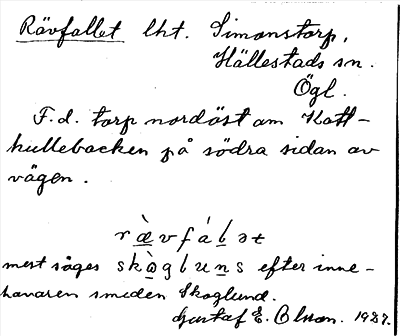 Rävfallet lht. Simonstorp,
Hällestads sn.
Ögl.
F.d. torp nordöst om Katt-
kullebacken på södra sidan av
vägen.
r æ̀ v f á l ə t
mest säges skò̀glu̱ṉs efter inne-
havaren smeden Skoglund.
Gustaf E. Olsson. 1927.